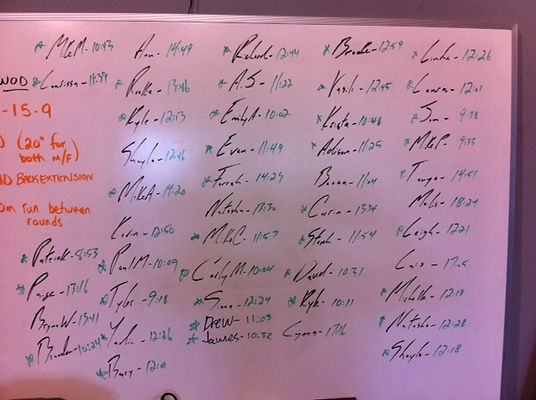 WOD
-15-9
(20" for
both M/F)
BACK EXTENSION
run between
rounds
* MGM - 10:43
* Larissa - 11:49
* Patrick - 8:53
Paige - 13:16
Bryan W - 13:41
* Brooke - 10:24
Ann - 14:49
* 13:46
* Kyle - 12:53
Shayla - 12:46
* Mike A - 14:20
Kevin - 12:50
* Paul M - 10:09
* Tyler - 9:18
* 12:26
* Barry - 12:01
* Richard - 12:44
* A.S - 11:22
* Emily A - 10:02
* Evan - 11:49
* Farrah - 14:29
Natasha - 13:30
* Mike C - 11:57
* Carly M - 10:04
* Sean - 12:24
* DREW - 11:03
* James - 10:32
* Brooke - 12:59
* Vasili - 12:45
* Krista - 10:48
* Adison - 11:25
11:04
* 13:34
* Steph - 11:54
* David - 10:31
* Kyle - 10:11
17:16
* Linda - 12:26
* Laura - 12:01
* Sam - 9:38
* 9:35
* Tanya - 14:51
18:24
* Leigh - 12:21
* Michelle - 12:19
* Natasha - 12:28
* Shayla - 12:18